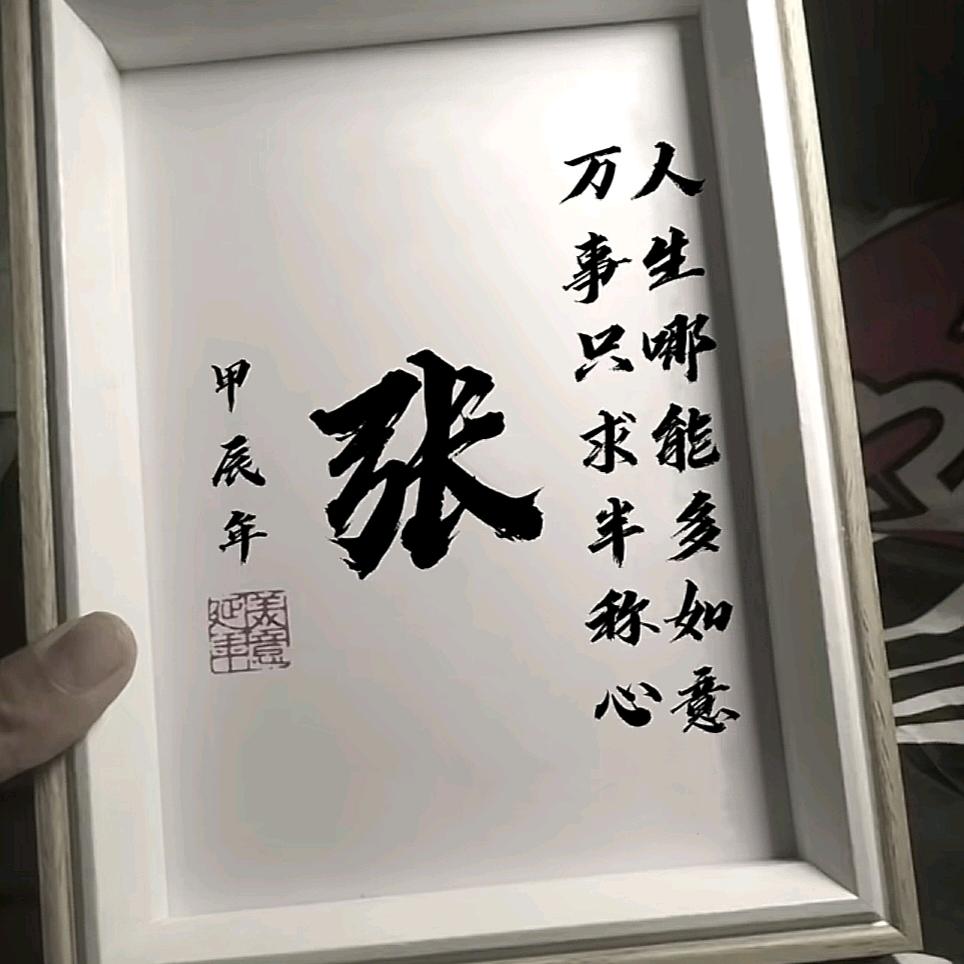 人生哪能多如意
万事只求半称心
张
甲辰年
美意延年